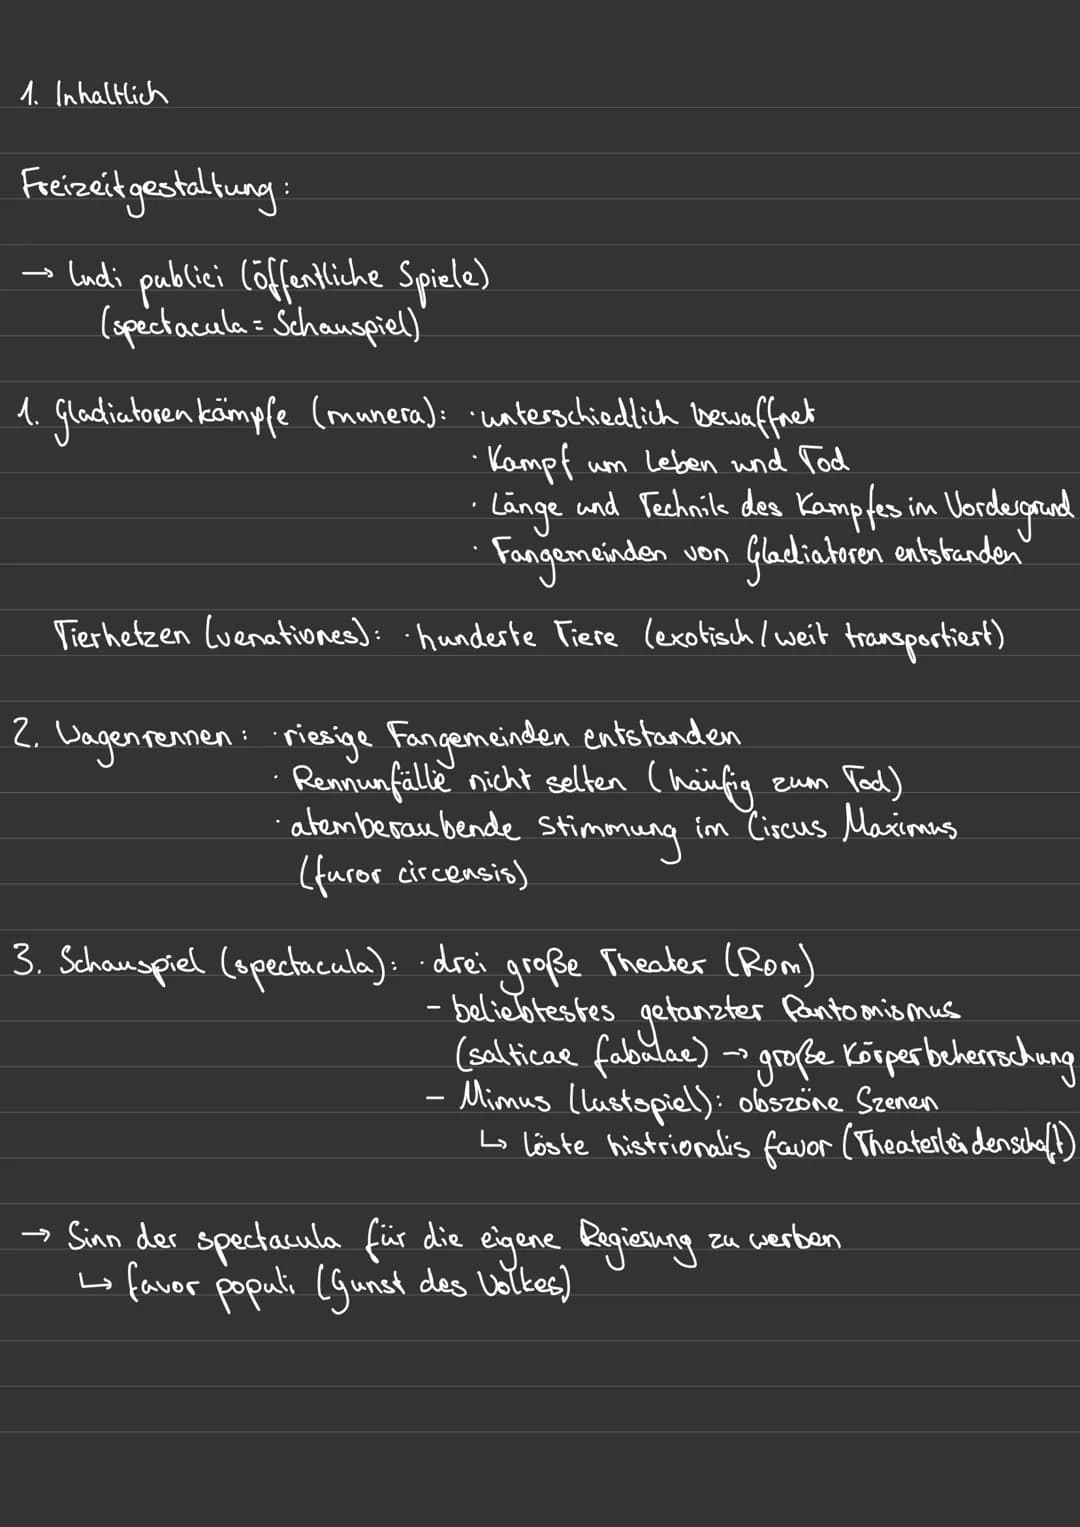 1. Inhaltlich
Freizeitgestaltung:
→ ludi publici (öffentliche Spiele)
(spectacula = Schauspiel)
1. Gladiatorenkämpfe (munera): · unterschiedlich bewaffnet
· Kampf um Leben und Tod
· Länge und Technik des Kampfes im Vordergrund
· Fangemeinden von Gladiatoren entstanden
Tierhetzen (venationes): · hunderte Tiere (exotisch / weit transportiert)
2. Wagenrennen: · riesige Fangemeinden entstanden
· Rennunfälle nicht selten (häufig zum Tod)
· atemberaubende Stimmung im Circus Maximus
(furor circensis)
3. Schauspiel (spectacula): · drei große Theater (Rom)
- beliebtestes getanzter Pantomismus
(salticae fabulae) → große Körperbeherrschung
- Mimus (Lustspiel): obszöne Szenen
↳ löste histrionalis favor (Theaterleidenschaft)
→ Sinn der spectacula für die eigene Regierung zu werben
↳ favor populi (Gunst des Volkes)